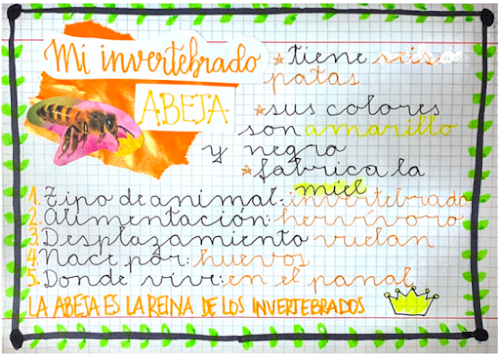 Mi invertebrado
ABEJA
* tiene seis
patas
* sus colores
son amarillo
y negro
* fabrica la
miel
1. Tipo de animal: invertebrado
2. Alimentación: hervívoro
3. Desplazamiento: vuelan
4. Nace por: huevos
5. Donde vive: en el panal
LA ABEJA ES LA REINA DE LOS INVERTEBRADOS